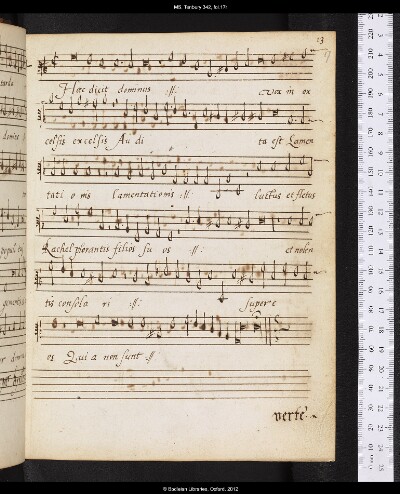 MS. Tenbury 342, fol.17r
13
17
Hæc dicit dominus :||: vox in ex
celsis excelsis Au di ta est Lamen
tati o nis lamentationis :||: luctus et fletus
Rachel plorantis filios su os :||: et nolen
tis consola ri :||: super e
os Qui a non sunt :||
verte
© Bodleian Libraries, Oxford, 2012